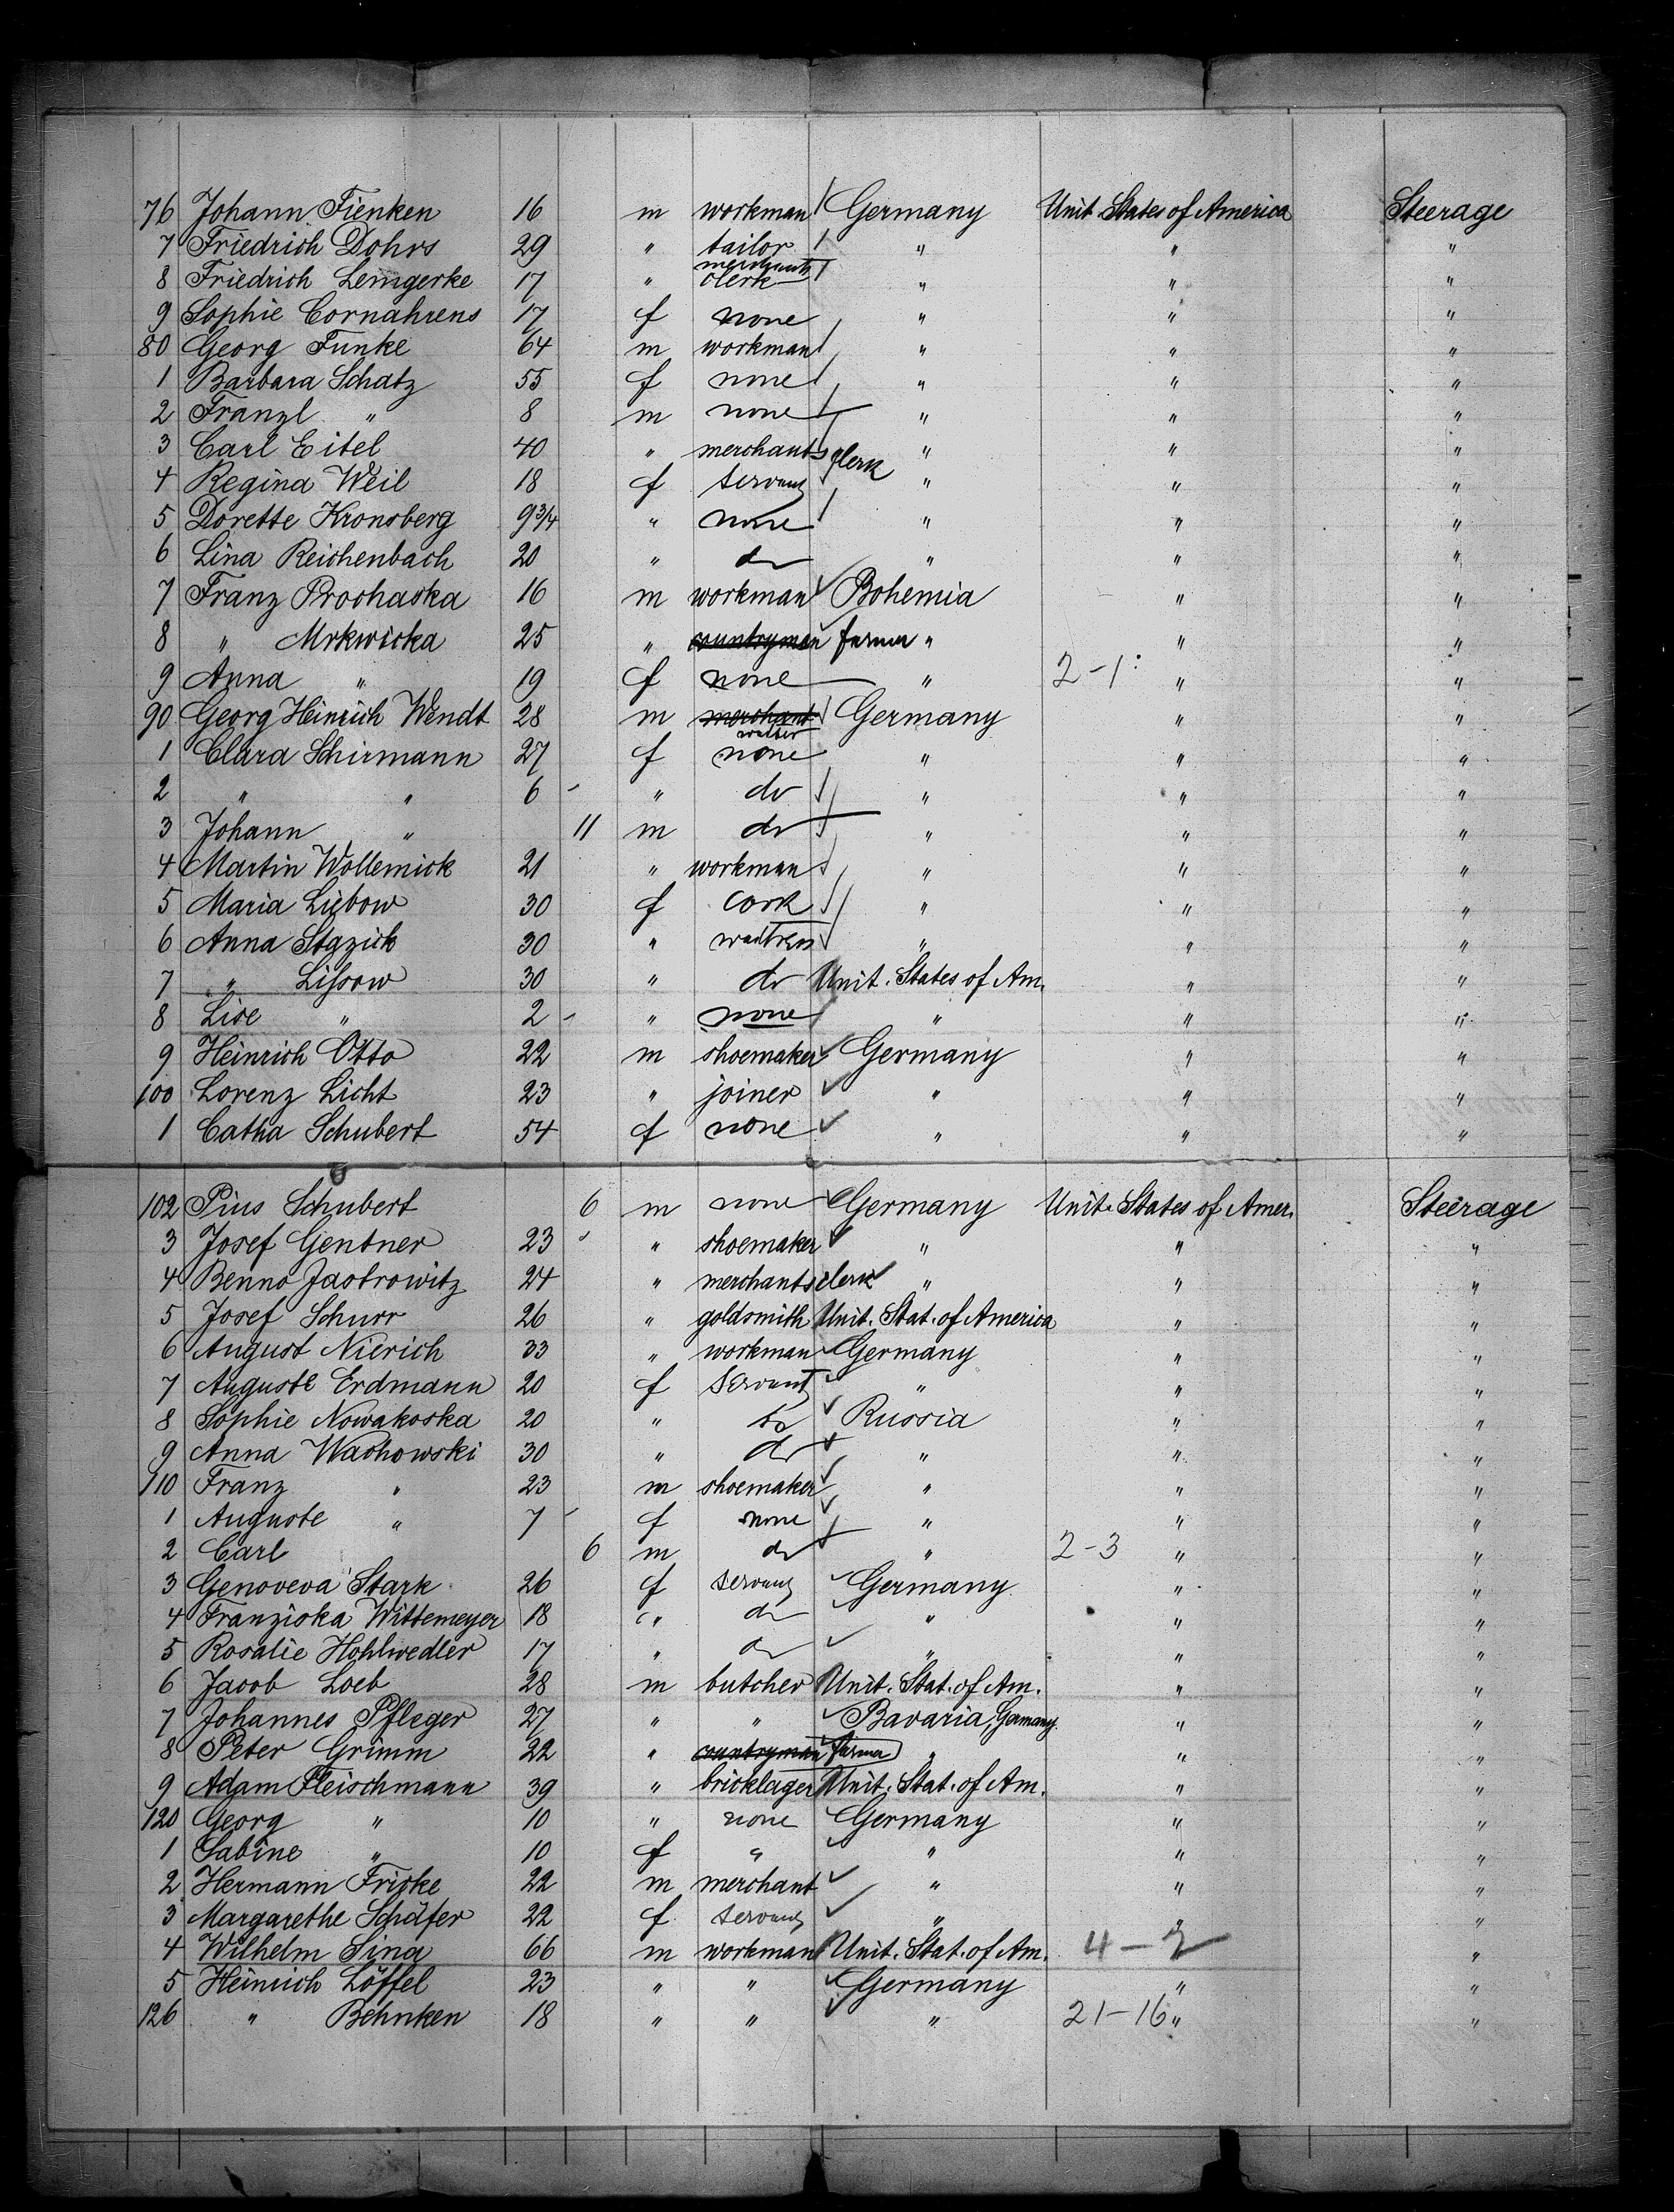 76 Johann Fienken 16 m workman Germany Unit. States of America Steerage
7 Friedrich Dohrs 29 " tailor " " "
8 Friedrich Lemgerke 17 " merchants clerk " " "
9 Sophie Cornahrens 17 f none " " "
80 Georg Funke 64 m workman " " "
1 Barbara Schatz 55 f none " " "
2 Franzl " 8 m none " " "
3 Carl Eitel 40 " merchants clerk " " "
4 Regina Weil 18 f servant " " "
5 Dorette Kronsberg 9 3/4 " none " " "
6 Lina Reichenbach 20 " do " " "
7 Franz Prochaska 16 m workman Bohemia " "
8 " Mrkwicka 25 " countryman farmer " " "
9 Anna " 19 f none " 2-1 " "
90 Georg Heinrich Wendt 28 m merchant waiter Germany " "
1 Clara Schirmann 27 f none " " "
2 " " 6 " do " " "
3 Johann " 11 m do " " "
4 Martin Wollemick 21 " workman " " "
5 Maria Liebow 30 f cook " " "
6 Anna Stazick 30 " waitress " " "
7 " Lissow 30 " do Unit. States of Am. " "
8 Lise " 2 " none " " "
9 Heinrich Otto 22 m shoemaker Germany " "
100 Lorenz Licht 23 " joiner " " "
1 Catha Schubert 54 f none " " "
102 Pius Schubert 6 m none Germany Unit. States of Amer. Steerage
3 Josef Gentner 23 " shoemaker " " "
4 Benno Jastrowitz 24 " merchants clerk " " "
5 Josef Schurr 26 " goldsmith Unit. Stat. of America " "
6 August Nierich 33 " workman Germany " "
7 Auguste Erdmann 20 f servant " " "
8 Sophie Nowakoska 20 " do Russia " "
9 Anna Wachowski 30 " do " " "
110 Franz " 23 m shoemaker " " "
1 Auguste " 7 f none " " "
2 Carl 6 m do " 2-3 " "
3 Genoveva Stark 26 f servant Germany " "
4 Franziska Wittemeyer 18 " do " " "
5 Rosalie Hohlwedler 17 " do " " "
6 Jacob Loeb 28 m butcher Unit. Stat. of Am. " "
7 Johannes Pfleger 27 " " Bavaria, Germany " "
8 Peter Grimm 22 " countryman farmer " " "
9 Adam Fleischmann 39 " bricklager Unit. Stat. of Am. " "
120 Georg " 10 " none Germany " "
1 Sabine " 10 f " " " "
2 Hermann Fricke 22 m merchant " " "
3 Margarethe Schäfer 22 f servant " " "
4 Wilhelm Sina 66 m workman Unit. Stat. of Am. 4-2 "
5 Heinrich Löffel 23 " " Germany " "
126 " Behnken 18 " " " 21-16 " "